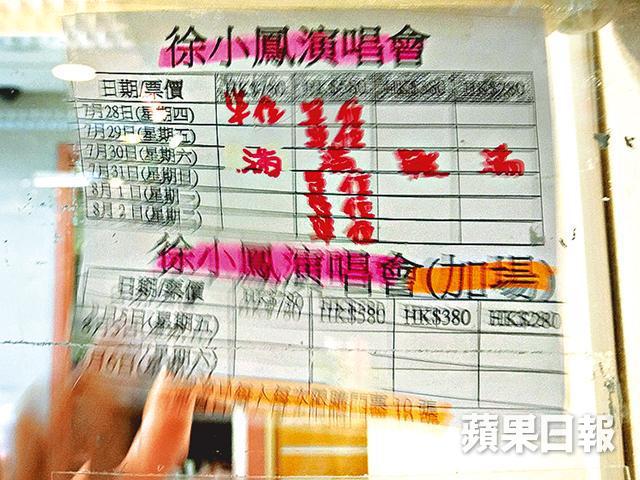 徐小鳳演唱會
日期/票價 HK$780 HK$380 HK$280
7月28日(星期四) 單位 單位
7月29日(星期五) 單位
7月30日(星期六) 滿 滿 滿 滿
7月31日(星期日) 單位
8月1日(星期一) 單位
8月2日(星期二) 單位
徐小鳳演唱會(加場)
日期/票價 HK$780 HK$380 HK$280
8月5日(星期五)
月6日(星期六)
每人每次限購門票
蘋果日報